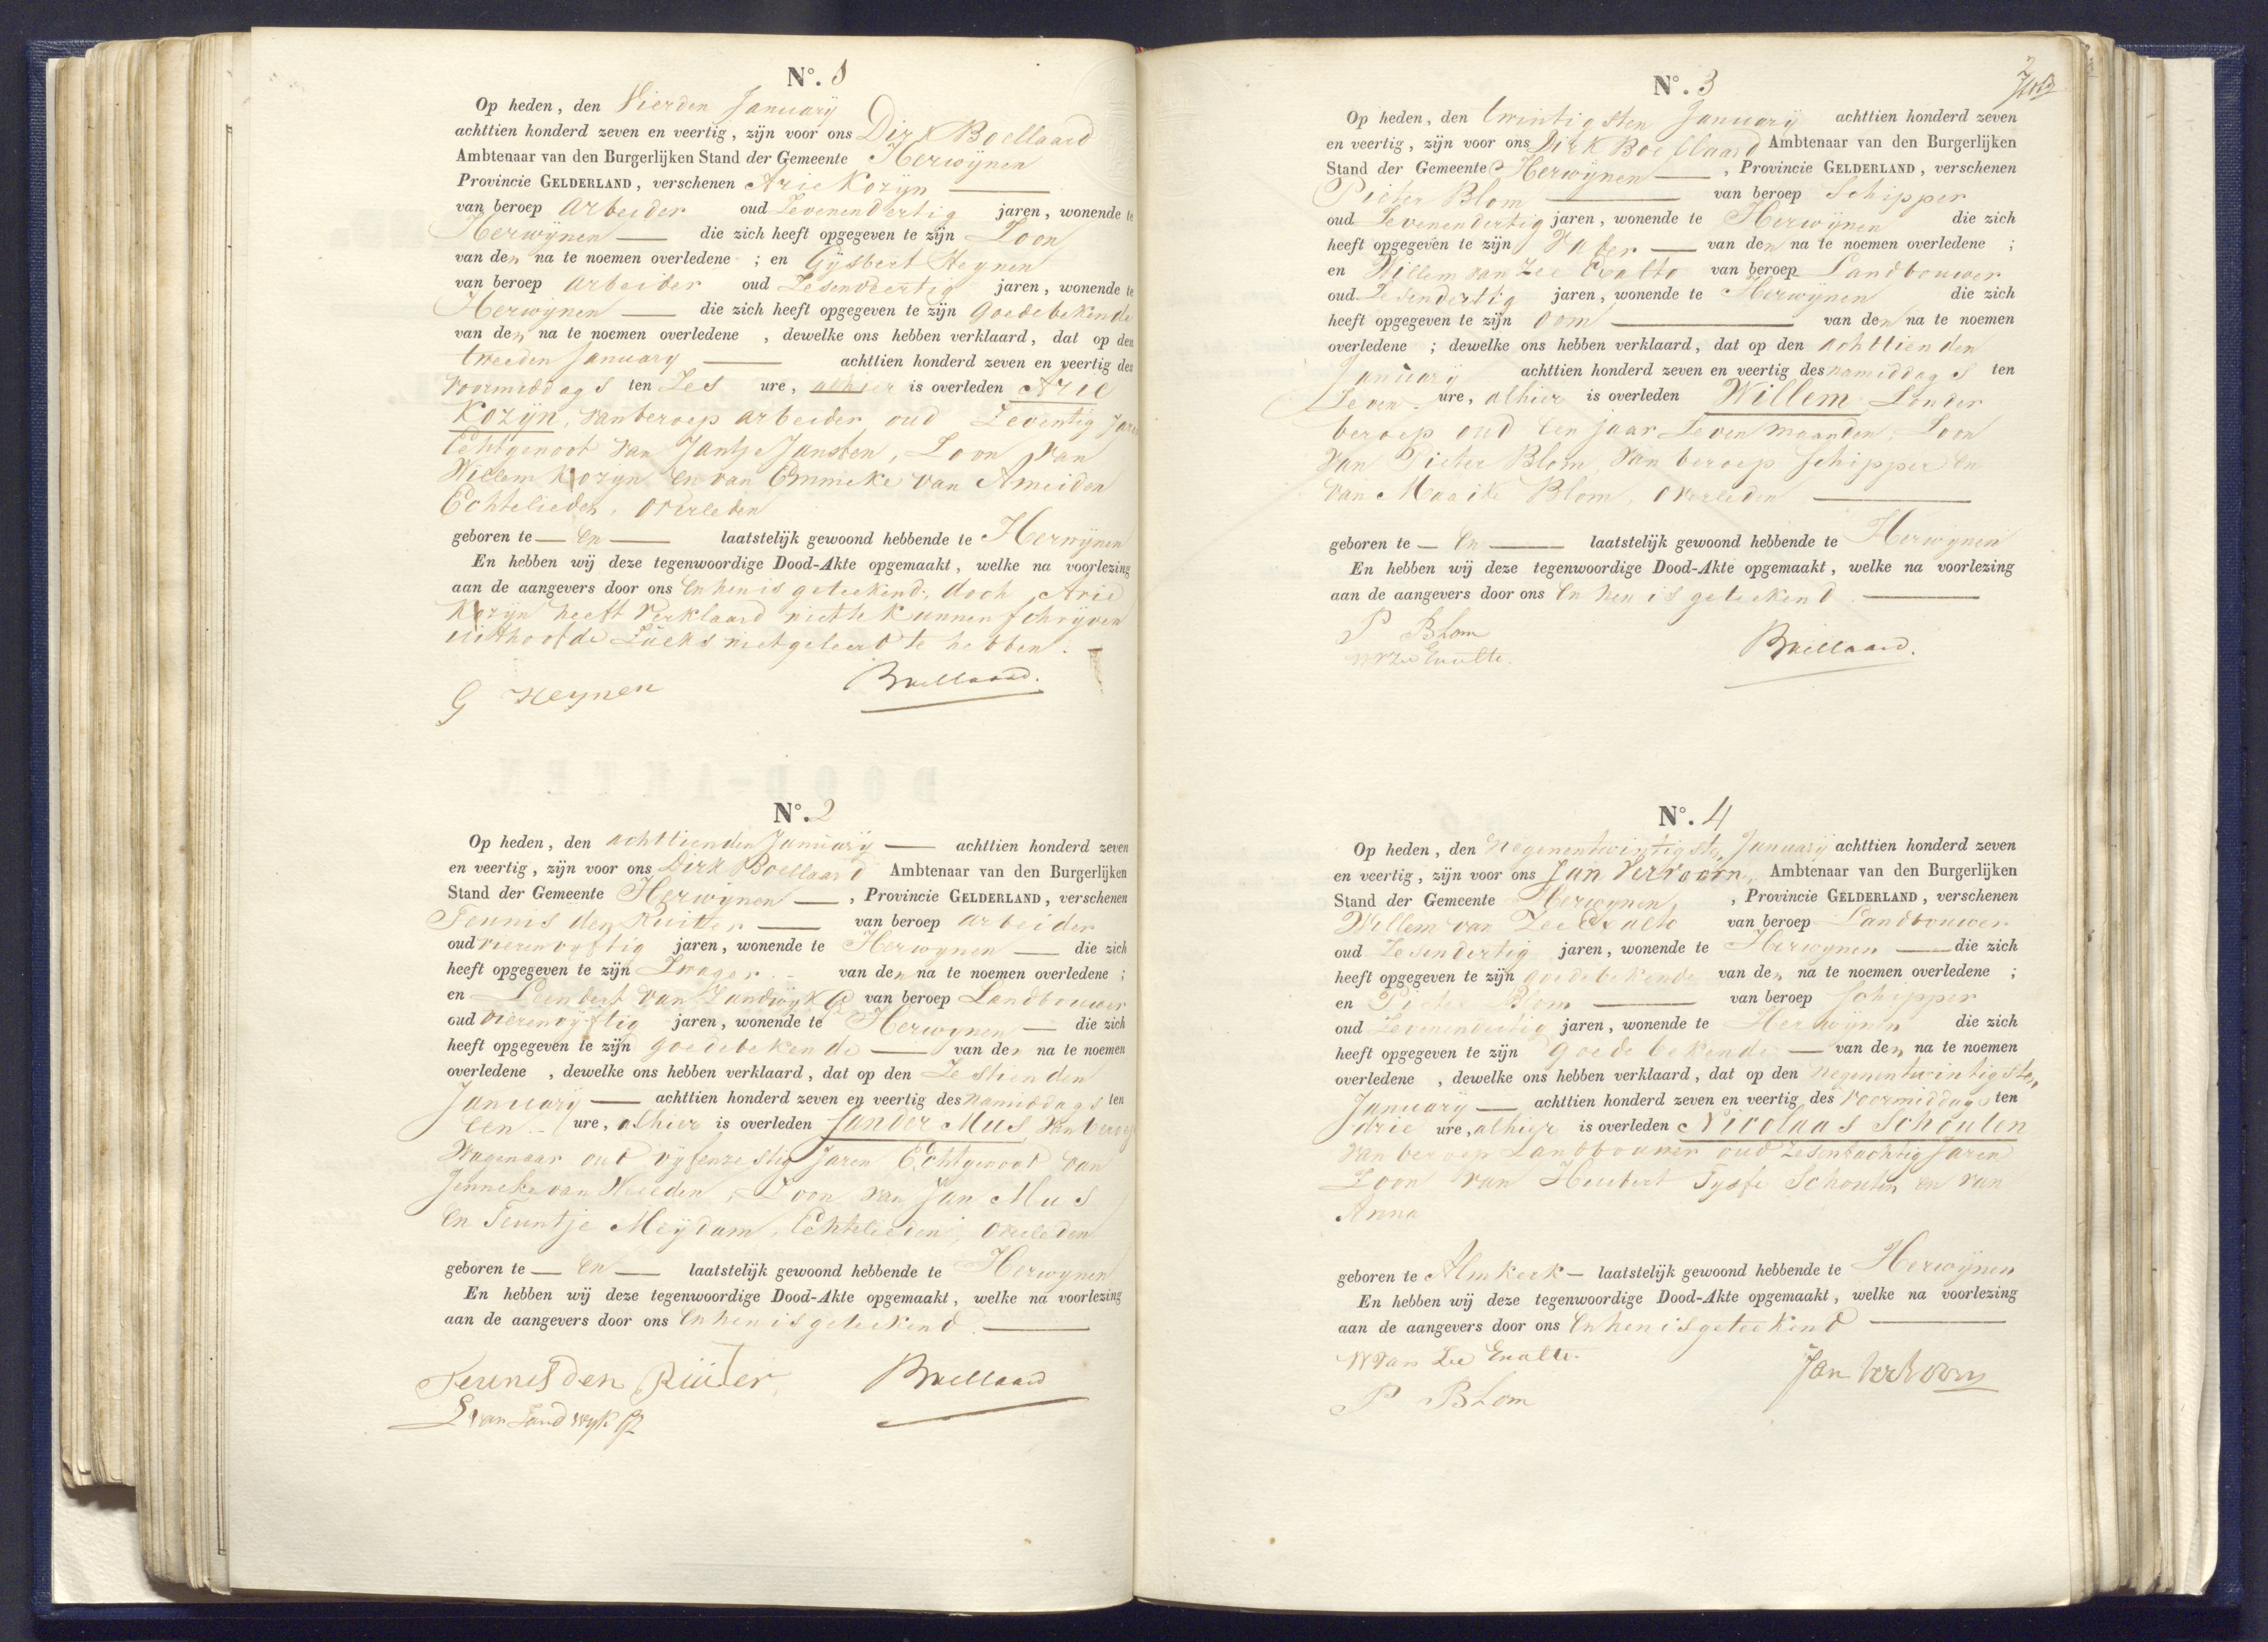 N°. 1
Op heden, den Vierden Januarij
achttien honderd zeven en veertig, zijn voor ons Dirk Boellaard
Ambtenaar van den Burgerlijken Stand der Gemeente Herwijnen
Provincie GELDERLAND, verschenen Arie Kozijn
van beroep arbeider oud Zevenendertig jaren, wonende te
Herwijnen die zich heeft opgegeven te zijn Zoon
van den na te noemen overledene ; en Gijsbert Heynen
van beroep arbeider oud Zesendertig jaren, wonende te
Herwijnen die zich heeft opgegeven te zijn goedebekende
van den na te noemen overledene , dewelke ons hebben verklaard, dat op den
tweeden January achttien honderd zeven en veertig des
voormiddags ten Zes ure, alhier is overleden Arie
Kozijn, van beroep arbeider oud Zeventig Jaren
Echtgenoot van Jantje Jansten, Zoon van
Willem Kozijn en van Emmeke van Ameiden
Echtelieden, overleden
geboren te — en — laatstelijk gewoond hebbende te Herwijnen
En hebben wij deze tegenwoordige Dood-Akte opgemaakt, welke na voorlezing
aan de aangevers door ons en hen is geteekend, doch Arie
Kozijn heeft verklaard niet te kunnen schrijven
uithoofde zulks niet geleerd te hebben.
G Heynen Boellaard.
N°. 2
Op heden, den achttienden Januarij — achttien honderd zeven
en veertig, zijn voor ons Dirk Boellaard Ambtenaar van den Burgerlijken
Stand der Gemeente Herwynen —, Provincie GELDERLAND, verschenen
Teunis den Ruiter — van beroep arbeider
oud vierenvyftig jaren, wonende te Herwynen — die zich
heeft opgegeven te zijn Zwager van den na te noemen overledene ;
en Leendert van Zandwyk Gz van beroep Landbouwer
oud vierenvyftig jaren, wonende te Herwynen — die zich
heeft opgegeven te zijn goedebekende — van den na te noemen
overledene , dewelke ons hebben verklaard, dat op den Zestienden
January — achttien honderd zeven en veertig des namiddags ten
een ure, alhier is overleden Jander Mus van beroep
Wagenaar oud vyfenzestig Jaren Echtgenoot van
Jenneke van Weelden, Zoon van Jan Mus
en Teuntje Meydam, Echtelieden, overleden
geboren te — en — laatstelijk gewoond hebbende te Herwynen
En hebben wij deze tegenwoordige Dood-Akte opgemaakt, welke na voorlezing
aan de aangevers door ons en hen is geteekend.
Teunis den Ruiter, Boellaard
L van Zandwyk Gz
2
N°. 3
Op heden, den twintigsten January achttien honderd zeven
en veertig, zijn voor ons Dirk Boellaard Ambtenaar van den Burgerlijken
Stand der Gemeente Herwynen —, Provincie GELDERLAND, verschenen
Pieter Blom — van beroep Schipper
oud Zevenendertig jaren, wonende te Herwynen die zich
heeft opgegeven te zijn Vader — van den na te noemen overledene ;
en Willem van Zee Exalto van beroep Landbouwer
oud Zesendertig jaren, wonende te Herwynen die zich
heeft opgegeven te zijn oom — van den na te noemen
overledene ; dewelke ons hebben verklaard, dat op den achttienden
January achttien honderd zeven en veertig des namiddags ten
Zeven ure, alhier is overleden Willem Zonder
beroep oud een jaar Zeven maanden, Zoon
van Pieter Blom, van beroep schipper en
van Maaike Blom, overleden —
geboren te — en — laatstelijk gewoond hebbende te Herwynen
En hebben wij deze tegenwoordige Dood-Akte opgemaakt, welke na voorlezing
aan de aangevers door ons en hen is geteekend.
P Blom Boellaard.
W v Zee Exalto.
N°. 4
Op heden, den negenentwintigsten January achttien honderd zeven
en veertig, zijn voor ons Jan Vervoorn, Ambtenaar van den Burgerlijken
Stand der Gemeente Herwynen, Provincie GELDERLAND, verschenen
Willem van Zee Exalto van beroep Landbouwer
oud Zesendertig jaren, wonende te Herwynen — die zich
heeft opgegeven te zijn goedebekende van den na te noemen overledene ;
en Pieter Blom — van beroep Schipper
oud Zevenendertig jaren, wonende te Herwynen die zich
heeft opgegeven te zijn goedebekende — van den na te noemen
overledene , dewelke ons hebben verklaard, dat op den negenentwintigsten
January — achttien honderd zeven en veertig des voormiddags ten
drie ure, alhier is overleden Nicolaas Schouten
van beroep Landbouwer oud Zesentachtig Jaren
Zoon van Huibert Tysse Schouten en van
Anna
geboren te Almkerk — laatstelijk gewoond hebbende te Herwijnen
En hebben wij deze tegenwoordige Dood-Akte opgemaakt, welke na voorlezing
aan de aangevers door ons en hen is geteekend —
W van Zee Exalto. Jan Vervoorn
P Blom